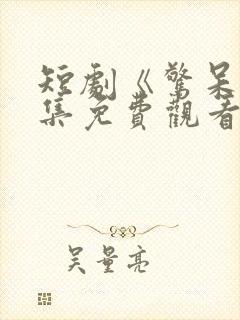 短劇《驚呆
集免費觀看
吳量亮